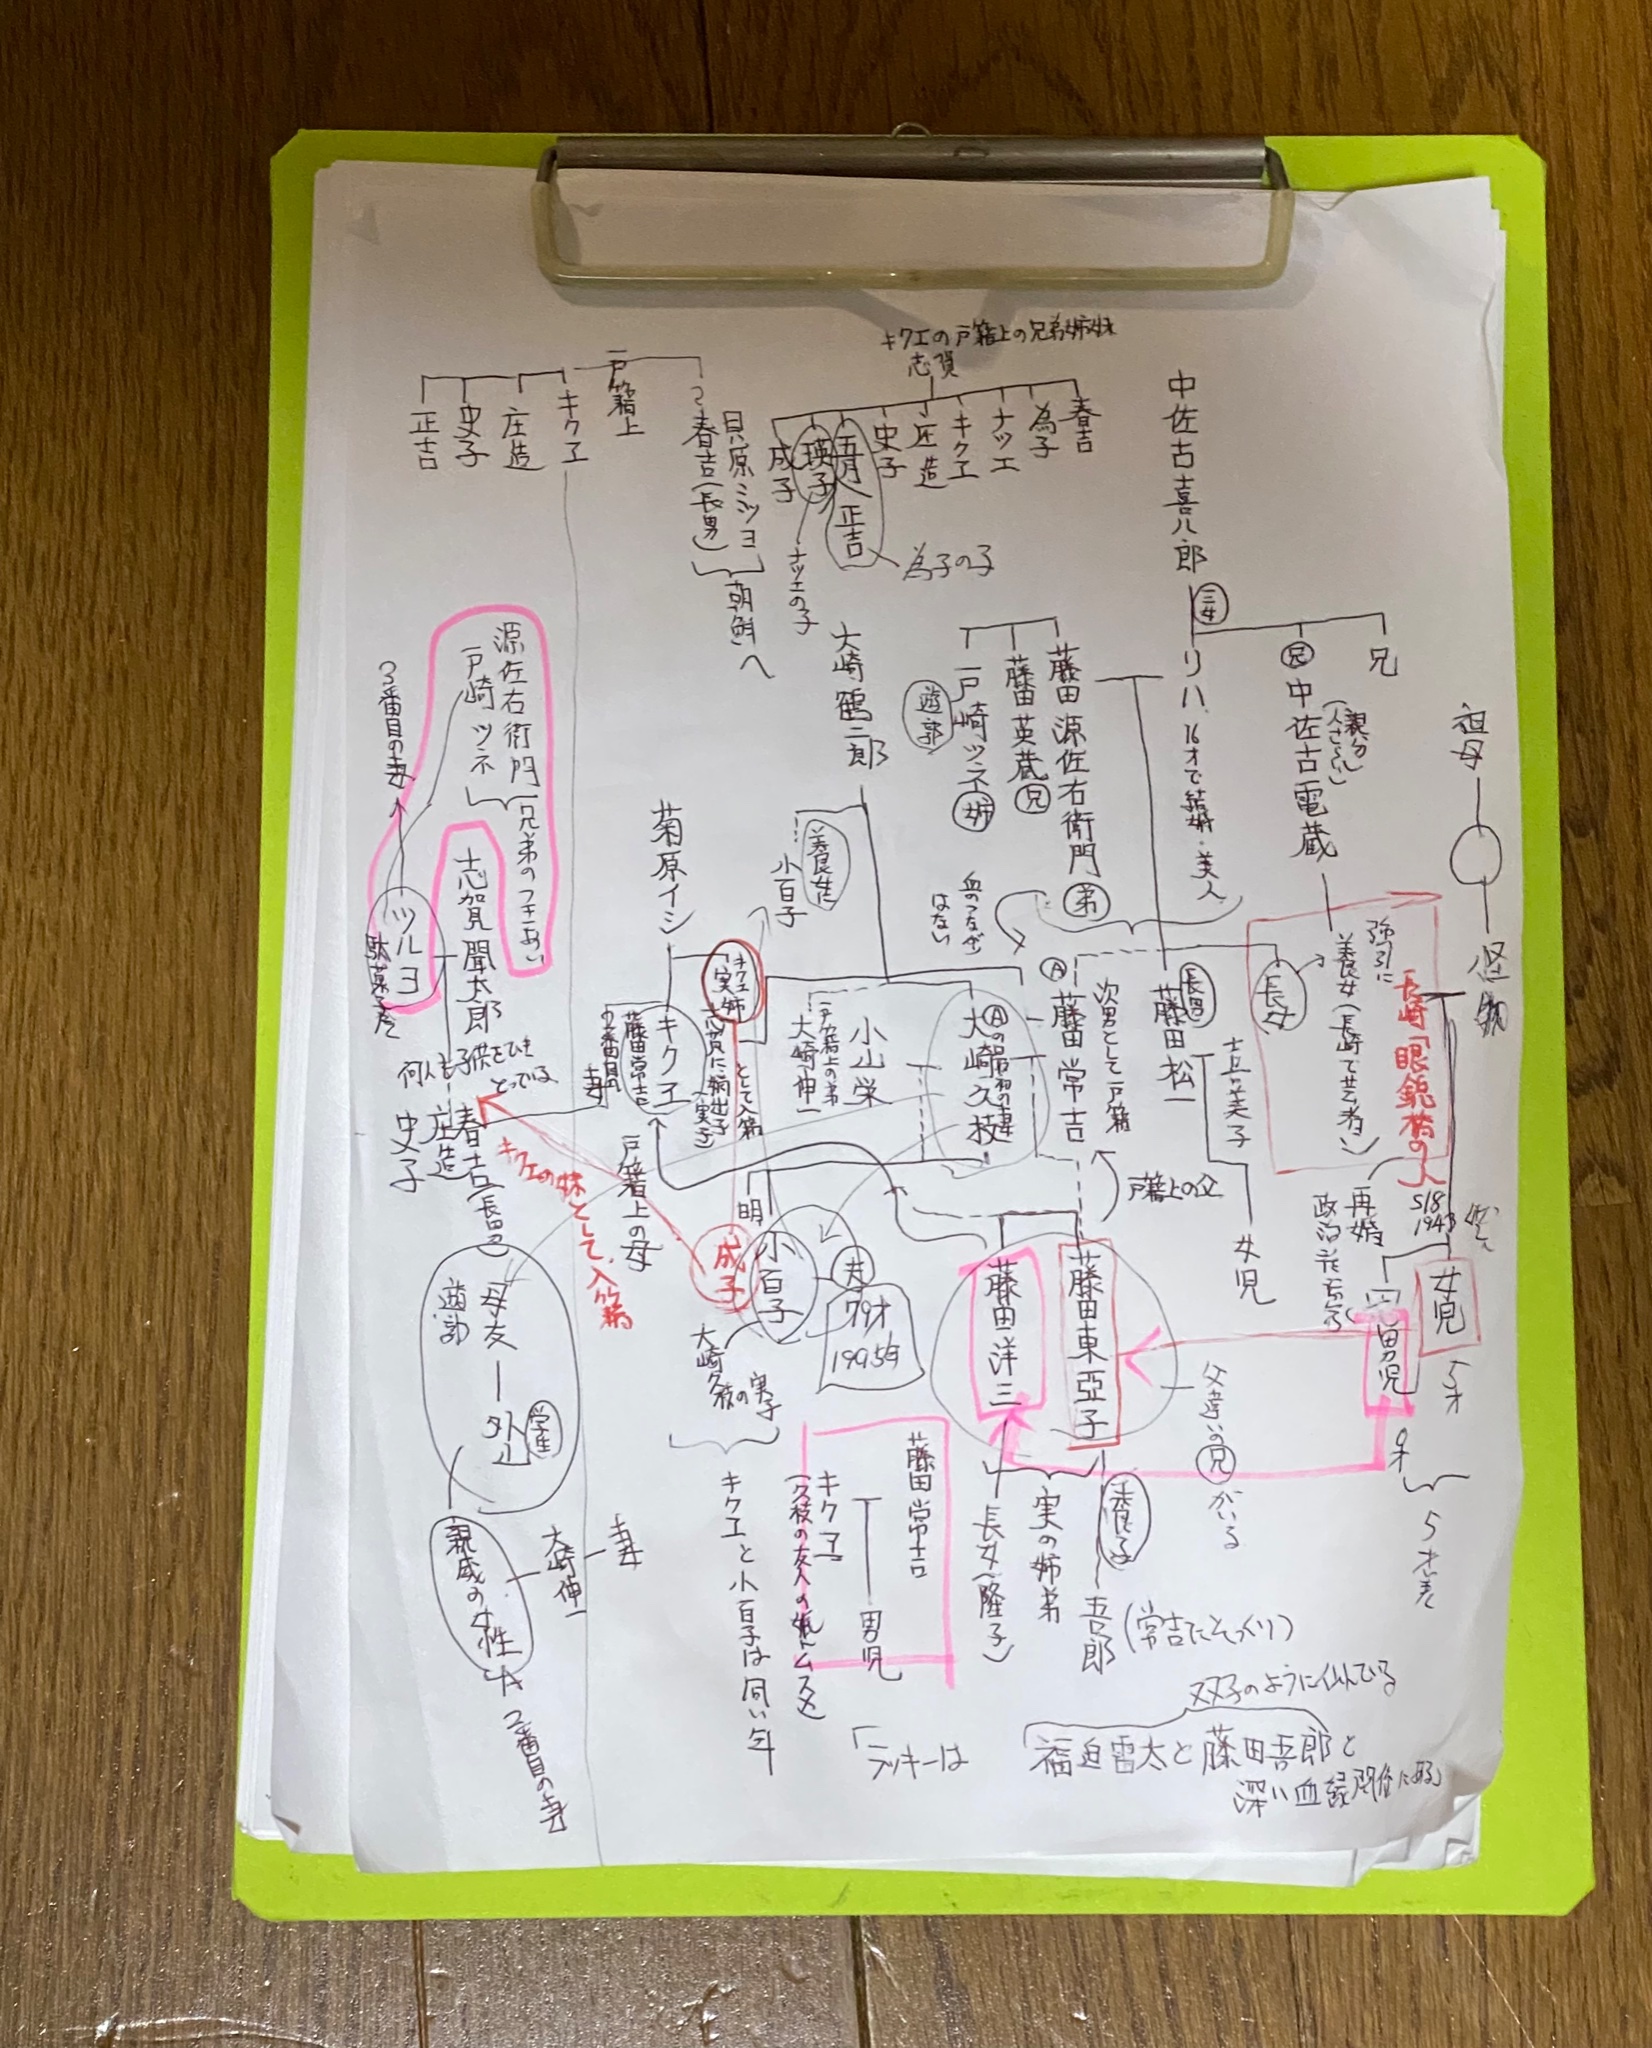 キクエの戸籍上の兄弟姉妹
志賀
春吉
為子
ナツエ
キクエ
庄造
史子
五月
正吉
瑛子
成子
為子の子
ナツエの子
戸籍上
キクエ
庄造
史子
正吉
春吉(長男)
貝原ミツヨ
朝鮮へ
中佐古喜八郎
三女
リハ 16才で結婚・美人
兄
中佐古電蔵
(親分)
(人さらい)
兄
祖母
怪物
藤田源佐右衛門
弟
藤田英蔵
兄
戸崎ツネ
姉
遊郭
大崎鶴二郎
養女に
小百子
血のつながり
はない
源佐右衛門
戸崎ツネ
兄弟のつきあい
3番目の妻
ツルヨ
駄菓子屋
志賀聞太郎
何人も子供をひき
とっている
春吉(長男)
庄造
史子
菊原イシ
キクエ
実姉
キクエ
藤田常吉
2番目の
妻
志賀に嫡出子
(実子)
として入籍
戸籍上の母
小山栄
戸籍上の弟
大崎伸一
大崎久枝
Aの最初の妻
A
藤田常吉
次男として戸籍
長男
藤田松一
喜美子
女児
長女
養女(長崎で芸者)
強引に
長崎「眼鏡橋の人
再婚
S18
1943
戸籍上の父
女児
5才
男児
0才
5才差
キクエの妹として、入籍
成子
明
小百子
夫
79才
1995年
大崎久枝の実子
キクエと小百子は同い年
藤田洋三
藤田東亞子
父違いの兄がいる
実の姉弟
長女(隆子)
養子
吾郎
(常吉にそっくり)
藤田常吉
キクエ
男児
母友
遊郭
外山
学生
親戚の女性
大崎伸一
妻
2番目の妻
双子のように似ている
「ラッキーは
福迫雷太と藤田吾郎と
深い血縁関係にある」